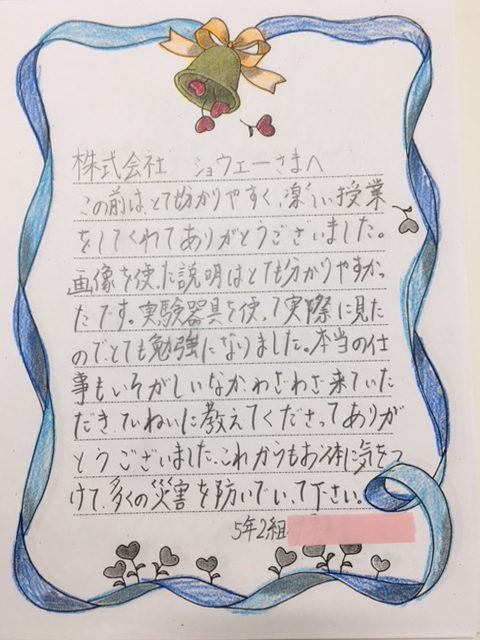 株式会社 ショウエーさまへ
この前は、とても分かりやすく、楽しい授業
をしてくれてありがとうございました。
画像を使った説明はとても分かりやすかっ
たです。実験器具を使って実際に見た
のでとても勉強になりました。本当の仕
事もいそがしいなか、わざわざ来ていた
だき、ていねいに教えてくださってありが
とうございました。これからもお体に気をつ
けて、多くの災害を防いでいって下さい。
5年2組